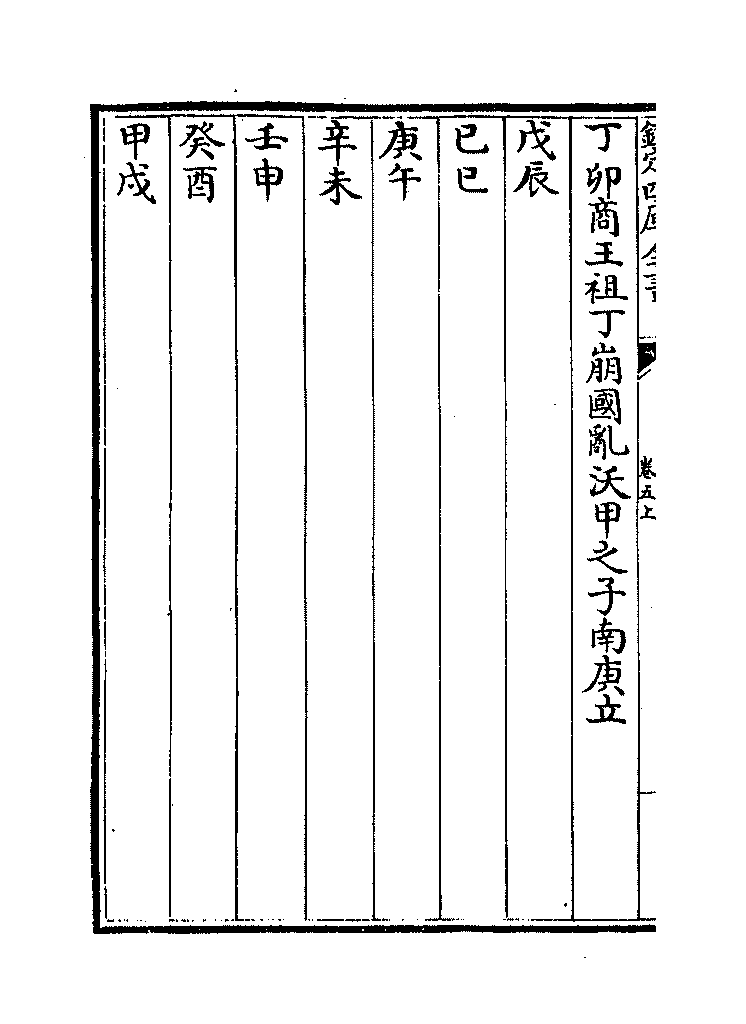 欽定四庫全書
卷五上
丁卯商王祖丁崩國亂沃甲之子南庚立
戊辰
己巳
庚午
辛未
壬申
癸酉
甲戌